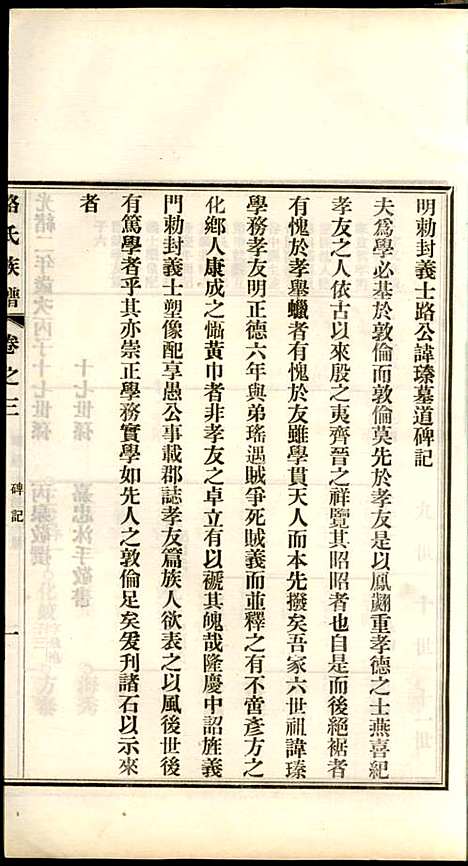 明勅封義士路公諱瑧墓道碑記
夫爲學必基於敦倫而敦倫莫先於孝友是以鳳翽重孝德之士燕喜紀
孝友之人依古以來殷之夷齊晉之祥覽其昭昭者也自是而後絕裾者
有愧於孝舉蠟者有愧於友雖學貫天人而本先撥矣吾家六世祖諱瑧
學務孝友明正德六年與弟瑤遇賊爭死賊義而並釋之有不啻彥方之
化鄉人康成之慚黃巾者非孝友之卓立有以褫其魄哉隆慶中詔旌義
門勅封義士塑像配享愚公事載郡誌孝友篇族人欲表之以風後世後
有篤學者乎其亦崇正學務實學如先人之敦倫足矣爰刊諸石以示來
者
路氏族譜 卷之三 碑記 一
光緒二年歲次丙子十七世孫
十七世孫